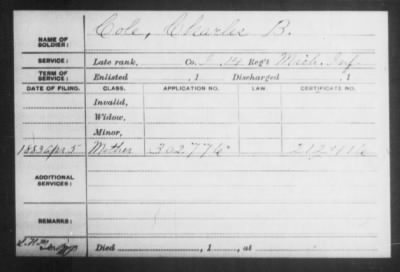 NAME OF SOLDIER: Cole, Charles B.
SERVICE: Late rank, Co. I, 14 Reg't Mich. Inf.
TERM OF SERVICE: Enlisted , 1 Discharged , 1
DATE OF FILING. CLASS. APPLICATION NO. LAW. CERTIFICATE NO.
Invalid,
Widow,
Minor,
1883 Apr 5 Mother 302776
ADDITIONAL SERVICES:
REMARKS:
Died , 1 , at